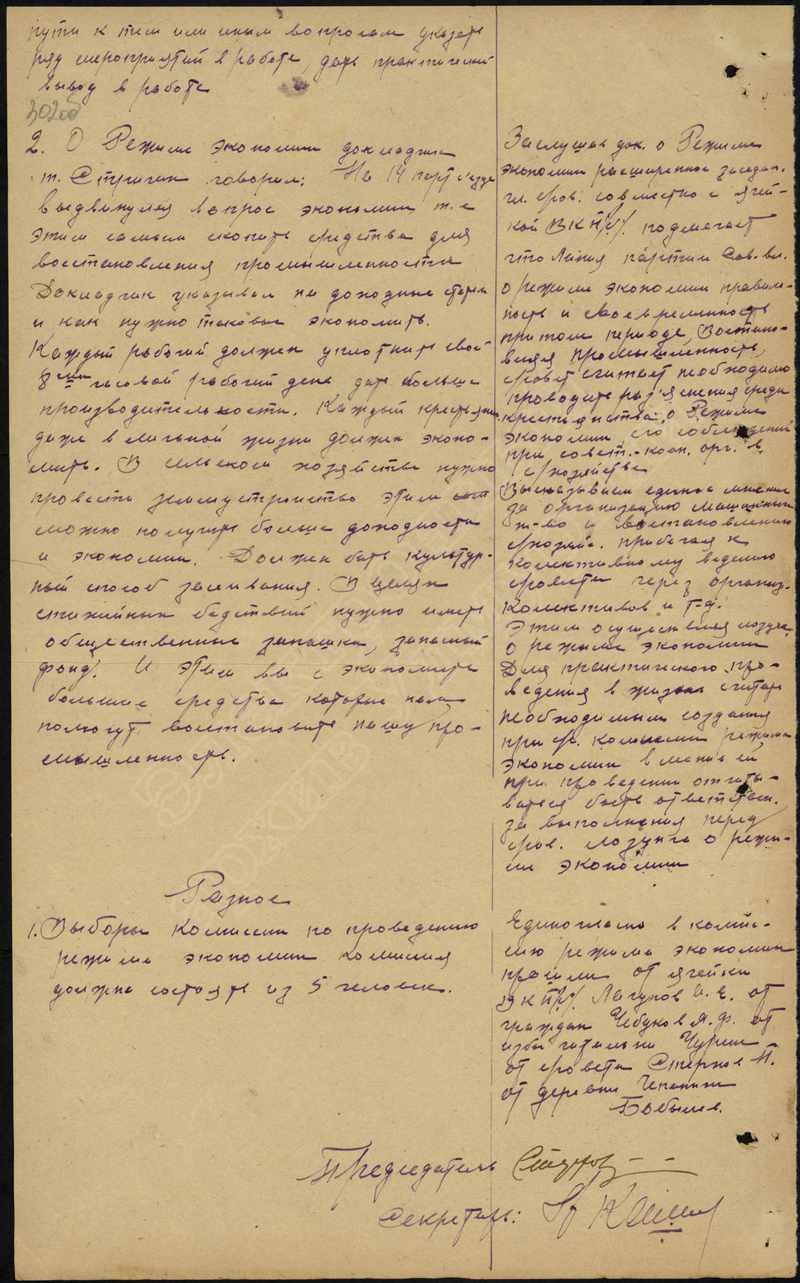 пути к тем или иным вопросам указать
ряд мероприятий в работе, дать практический
вывод в работе
302об
2. О Режиме экономии докладчик
т. говорил: На 14 партсъезде
выдвинулся вопрос экономии т.е.
этим самым скопить средства для
восстановления промышленности
Докладчик указывал на доходные статьи
и как нужно таковые экономить.
Каждый рабочий должен уплотнить свой
8ми часовой рабочий день дать больше
производительности. Каждый крестьянин
даже в личной жизни должен эконо-
мить. В сельском хозяйстве нужно
провести землеустройство этим
можно получить больше доходности
и экономии. Должен быть культур-
ный способ засевания. В целях
стихийных бедствий нужно иметь
общественные запашки, запасный
фонд. И этим вы с экономите
большие средства которые нам
помогут восстановить нашу про-
мышленность.
Разное
1. Выборы Комиссии по проведению
режима экономии комиссия
должна состоять из 5 человек.
Заслушав док. о Режиме
экономии расширенное заседан.
с/сов. совместно с ячей-
кой ВКП/б/ подмечает
что Линия партии Сов. вл.
о режиме экономии правиль-
ность и своевременность
при том периоде, Восстано-
вляя промышленность,
с/совет считает необходимо
проводить раз'яснения среди
крестьянства о Режиме
экономии его соблюдений
при совет.-кооп. орг. в
с/хозяйстве
Высказываем единое мнение
за организацию машинных
т-во и восстановлению
с/хозяй. прибегая к
коллективному ведению
через организ.
колективов и т.д.
Этим осуществляя лозунг
о режиме экономии
Для практического про-
ведения в жизнь считать
необходимым создания
при с/с. комиссии режима
экономии
при проведении отчиты-
ваться быть ответствен.
за выполнения перед
с/сов. лозунга о режи-
ме экономии
Единогласно в комис-
сию режима экономии
прошли от ячейки
ВКП/б/ Лагунов И.Е. от
граждан Чебуков Я.Ф. от
избы читальни
от с/совета
от деревни
Бобылев.
Председатель
Секретарь: